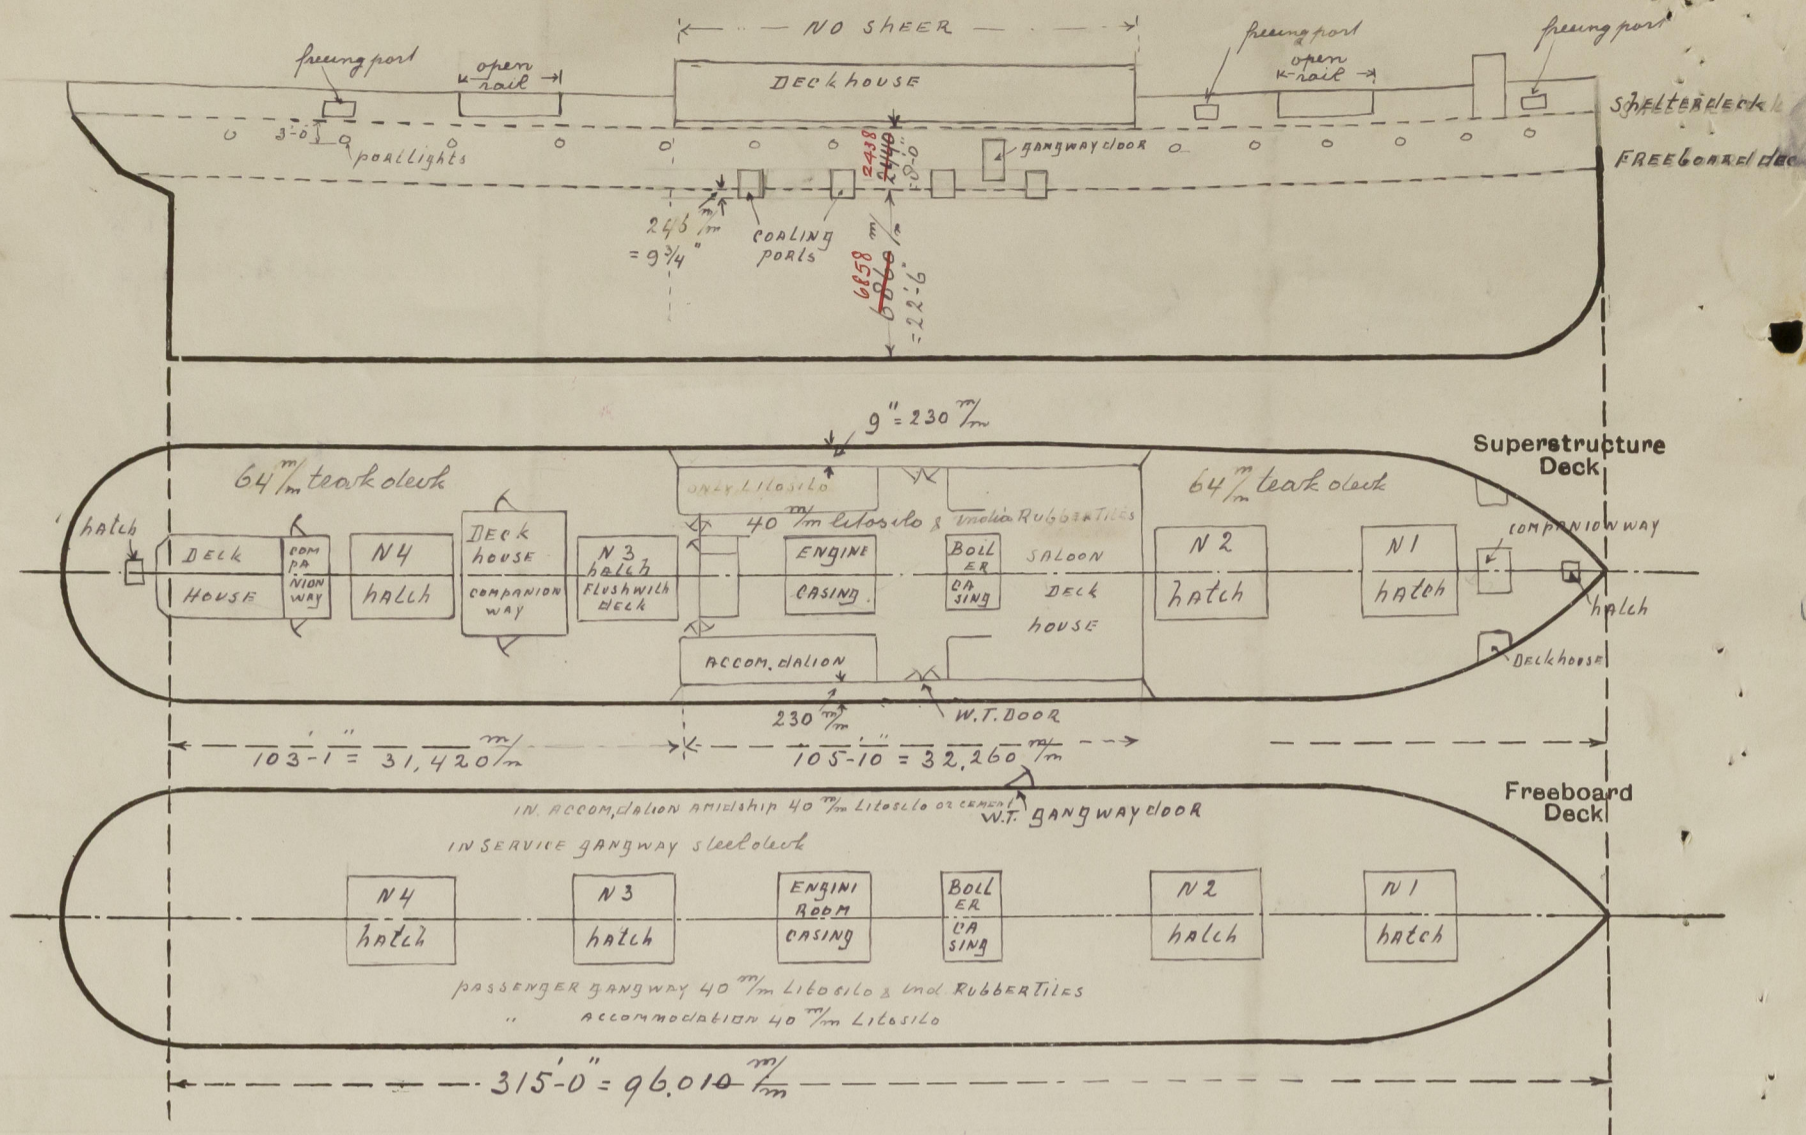 NO SHEER
freeing port
open
rail
DECKHOUSE
freeing port
open
rail
freeing port
SHELTERDECK
3'-0"
portlights
2438
2440
8'-0"
gangway door
FREEBOARD dec
245 m/m
= 9 3/4"
COALING
PORTS
6858
6860 m/m
= 22'-6"
9" = 230 m/m
Superstructure
Deck
64 m/m teak deck
ONLY LITOSILO
64 m/m teak deck
40 m/m litosilo & india RUBBERTILES
hatch
DECK
HOUSE
COM
PA
NION
WAY
N4
hatch
DECK
house
COMPANION
WAY
N3
hatch
Flush with
DECK
ENGINE
CASING
BOIL
ER
CA
SING
SALOON
DECK
house
N2
hatch
N1
hatch
COMPANIONWAY
hatch
DECKhouse
ACCOM.dation
230 m/m
W.T. DOOR
103'-1" = 31,420 m/m
105'-10" = 32,260 m/m
Freeboard
Deck
IN ACCOM,dation AMIdship 40 m/m Litosilo or CEMENT
W.T. gangway door
IN SERVICE gangway steel deck
N4
hatch
N3
hatch
ENGINE
ROOM
CASING
BOIL
ER
CA
SING
N2
hatch
N1
hatch
PASSENGER gangway 40 m/m Litosilo & ind. RUBBERTILES
" ACCOMMODATION 40 m/m Litosilo
315'-0" = 96.010 m/m